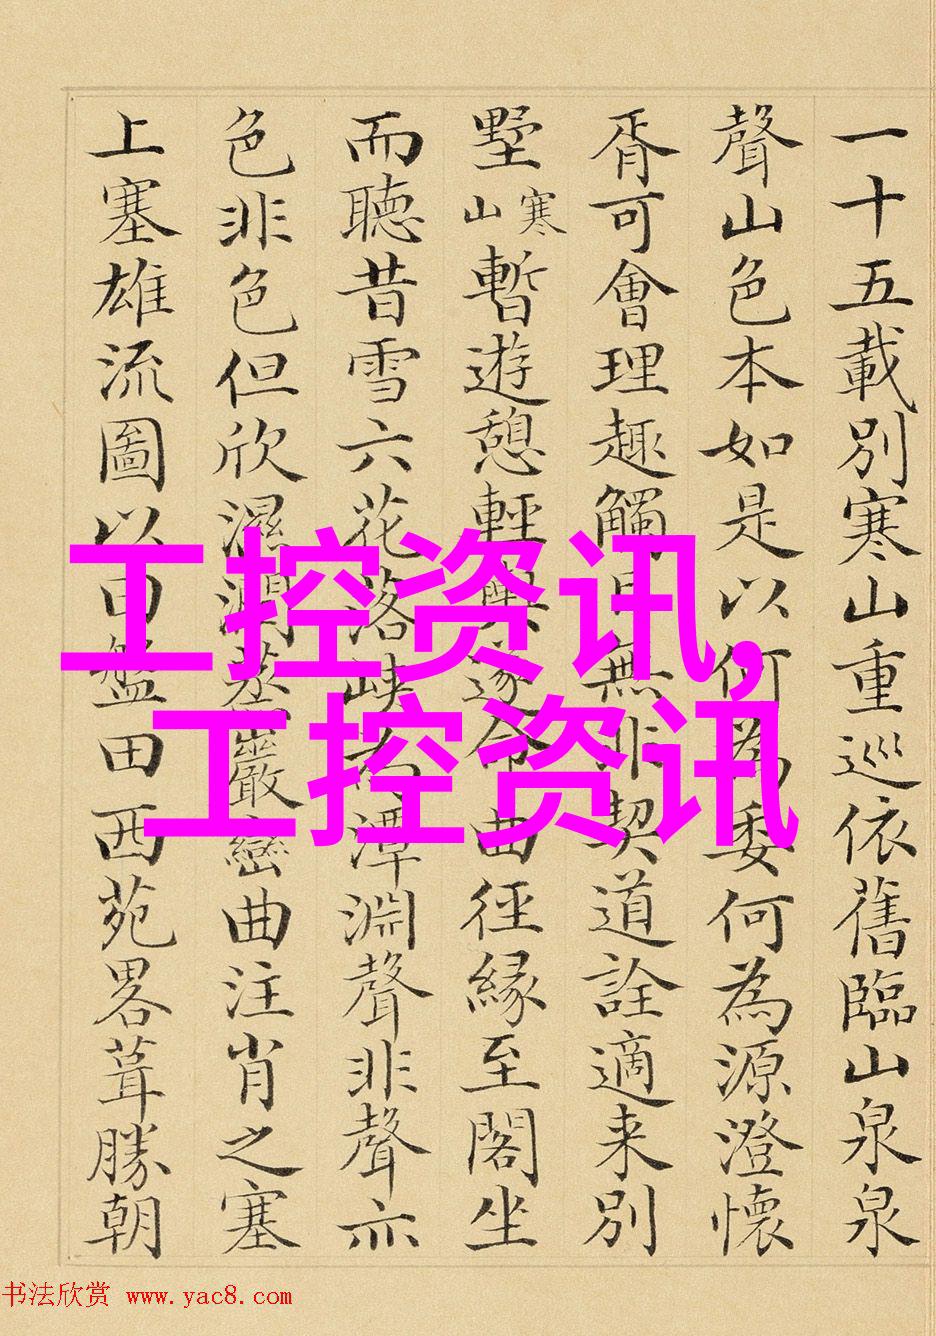 一十五載別寒山重巡依舊臨山泉泉
聲山色本如是以何為委何為源澄懷
胥可會理趣觸目無非契道詮適来別
墅寒山暫遊憩輕輿遂命曲徑緣至閣坐
而聴昔雪六花落峽為潭淵聲非聲亦
色非色但欣濕潤蒸巖巒曲注肖之塞
上塞雄流圖以盤田西苑畧葺勝朝
工控资讯,
工控资讯
书法欣赏 www.yac8.com